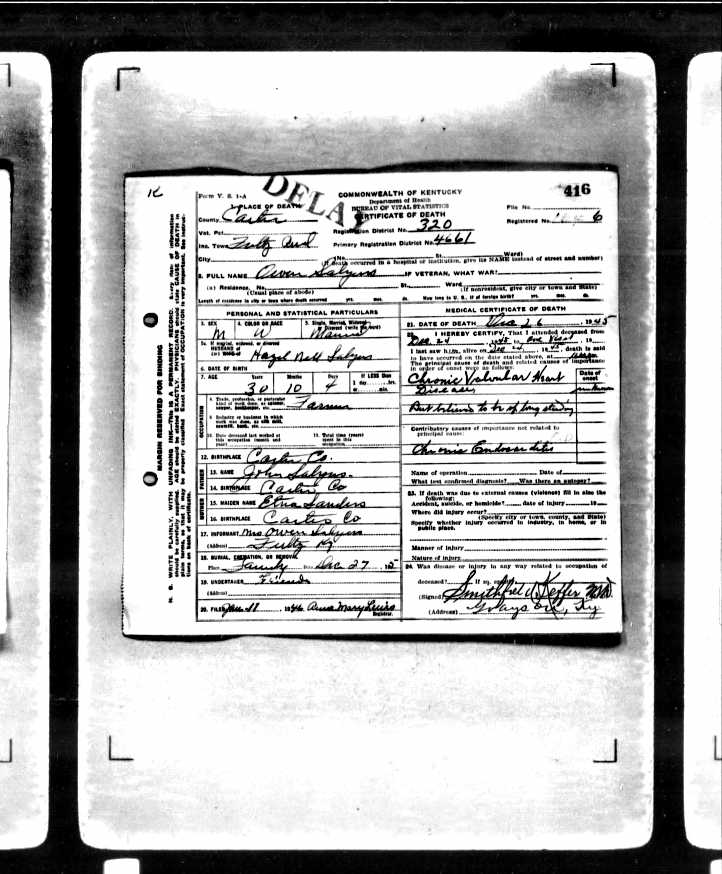 K
DELAY
416
Form V. S. 1-A
COMMONWEALTH OF KENTUCKY
Department of Health
BUREAU OF VITAL STATISTICS
CERTIFICATE OF DEATH
File No.
Registered No. 6
1. PLACE OF DEATH
County Carter
Registration District No. 320
Vot. Pct.
Inc. Town
Primary Registration District No. 4661
City (No. St. Ward)
(If death occurred in a hospital or institution, give its NAME instead of street and number)
2. FULL NAME Owen Salyers IF VETERAN, WHAT WAR?
(a) Residence. No. St. Ward
(Usual place of abode) (If nonresident, give city or town and State)
Length of residence in city or town where death occurred yrs. mos. ds. How long in U. S., if of foreign birth? yrs. mos. ds.
PERSONAL AND STATISTICAL PARTICULARS
3. SEX M
4. COLOR OR RACE W
5. Single, Married, Widowed, or Divorced (write the word)
5a. If married, widowed, or divorced
HUSBAND of
(or) WIFE of Hazel Nell Salyers
6. DATE OF BIRTH
7. AGE Years Months Days If LESS than
30 10 4 1 day hrs.
or min.
OCCUPATION
8. Trade, profession, or particular
kind of work done, as spinner,
sawyer, bookkeeper, etc. Farmer
9. Industry or business in which
work was done, as silk mill,
sawmill, bank, etc.
10. Date deceased last worked at
this occupation (month and
year)
11. Total time (years)
spent in this
occupation
12. BIRTHPLACE Carter Co.
FATHER
13. NAME John Salyers.
14. BIRTHPLACE Carter Co
MOTHER
15. MAIDEN NAME Etna Sanders
16. BIRTHPLACE Carter Co
17. INFORMANT Mrs Owen Salyers
(Address) Fultz Ky
18. BURIAL, CREMATION, OR REMOVAL
Place Family Date Dec 27
19. UNDERTAKER Friends
(Address)
20. FILED 1946 Anna Mary Lewis
Registrar.
MEDICAL CERTIFICATE OF DEATH
21. DATE OF DEATH Dec 26 , 1945
22. I HEREBY CERTIFY, That I attended deceased from
Dec. 24
I last saw him alive on death is said
to have occurred on the date stated above, at
The principal cause of death and related causes of importance
in order of onset were as follows:
Date of
onset
Chronic Valvular Heart
Disease
But believe to be of long standing
Contributory causes of importance not related to
principal cause:
Chronic Endocarditis
Name of operation Date of
What test confirmed diagnosis? Was there an autopsy?
23. If death was due to external causes (violence) fill in also the
following:
Accident, suicide, or homicide? date of injury 19
Where did injury occur?
(Specify city or town, county, and State)
Specify whether injury occurred in industry, in home, or in
public place.
Manner of injury
Nature of injury
24. Was disease or injury in any way related to occupation of
deceased? If so, specify
(Signed) Smithfield Keffer M.D.
(Address) Grayson, Ky
MARGIN RESERVED FOR BINDING
N. B. WRITE PLAINLY, WITH UNFADING INK—THIS IS A PERMANENT RECORD. Every item of information
should be carefully supplied. AGE should be stated EXACTLY. PHYSICIANS should state CAUSE OF DEATH in
plain terms, so that it may be properly classified. Exact statement of OCCUPATION is very important. See instruc-
tions on back of certificate.